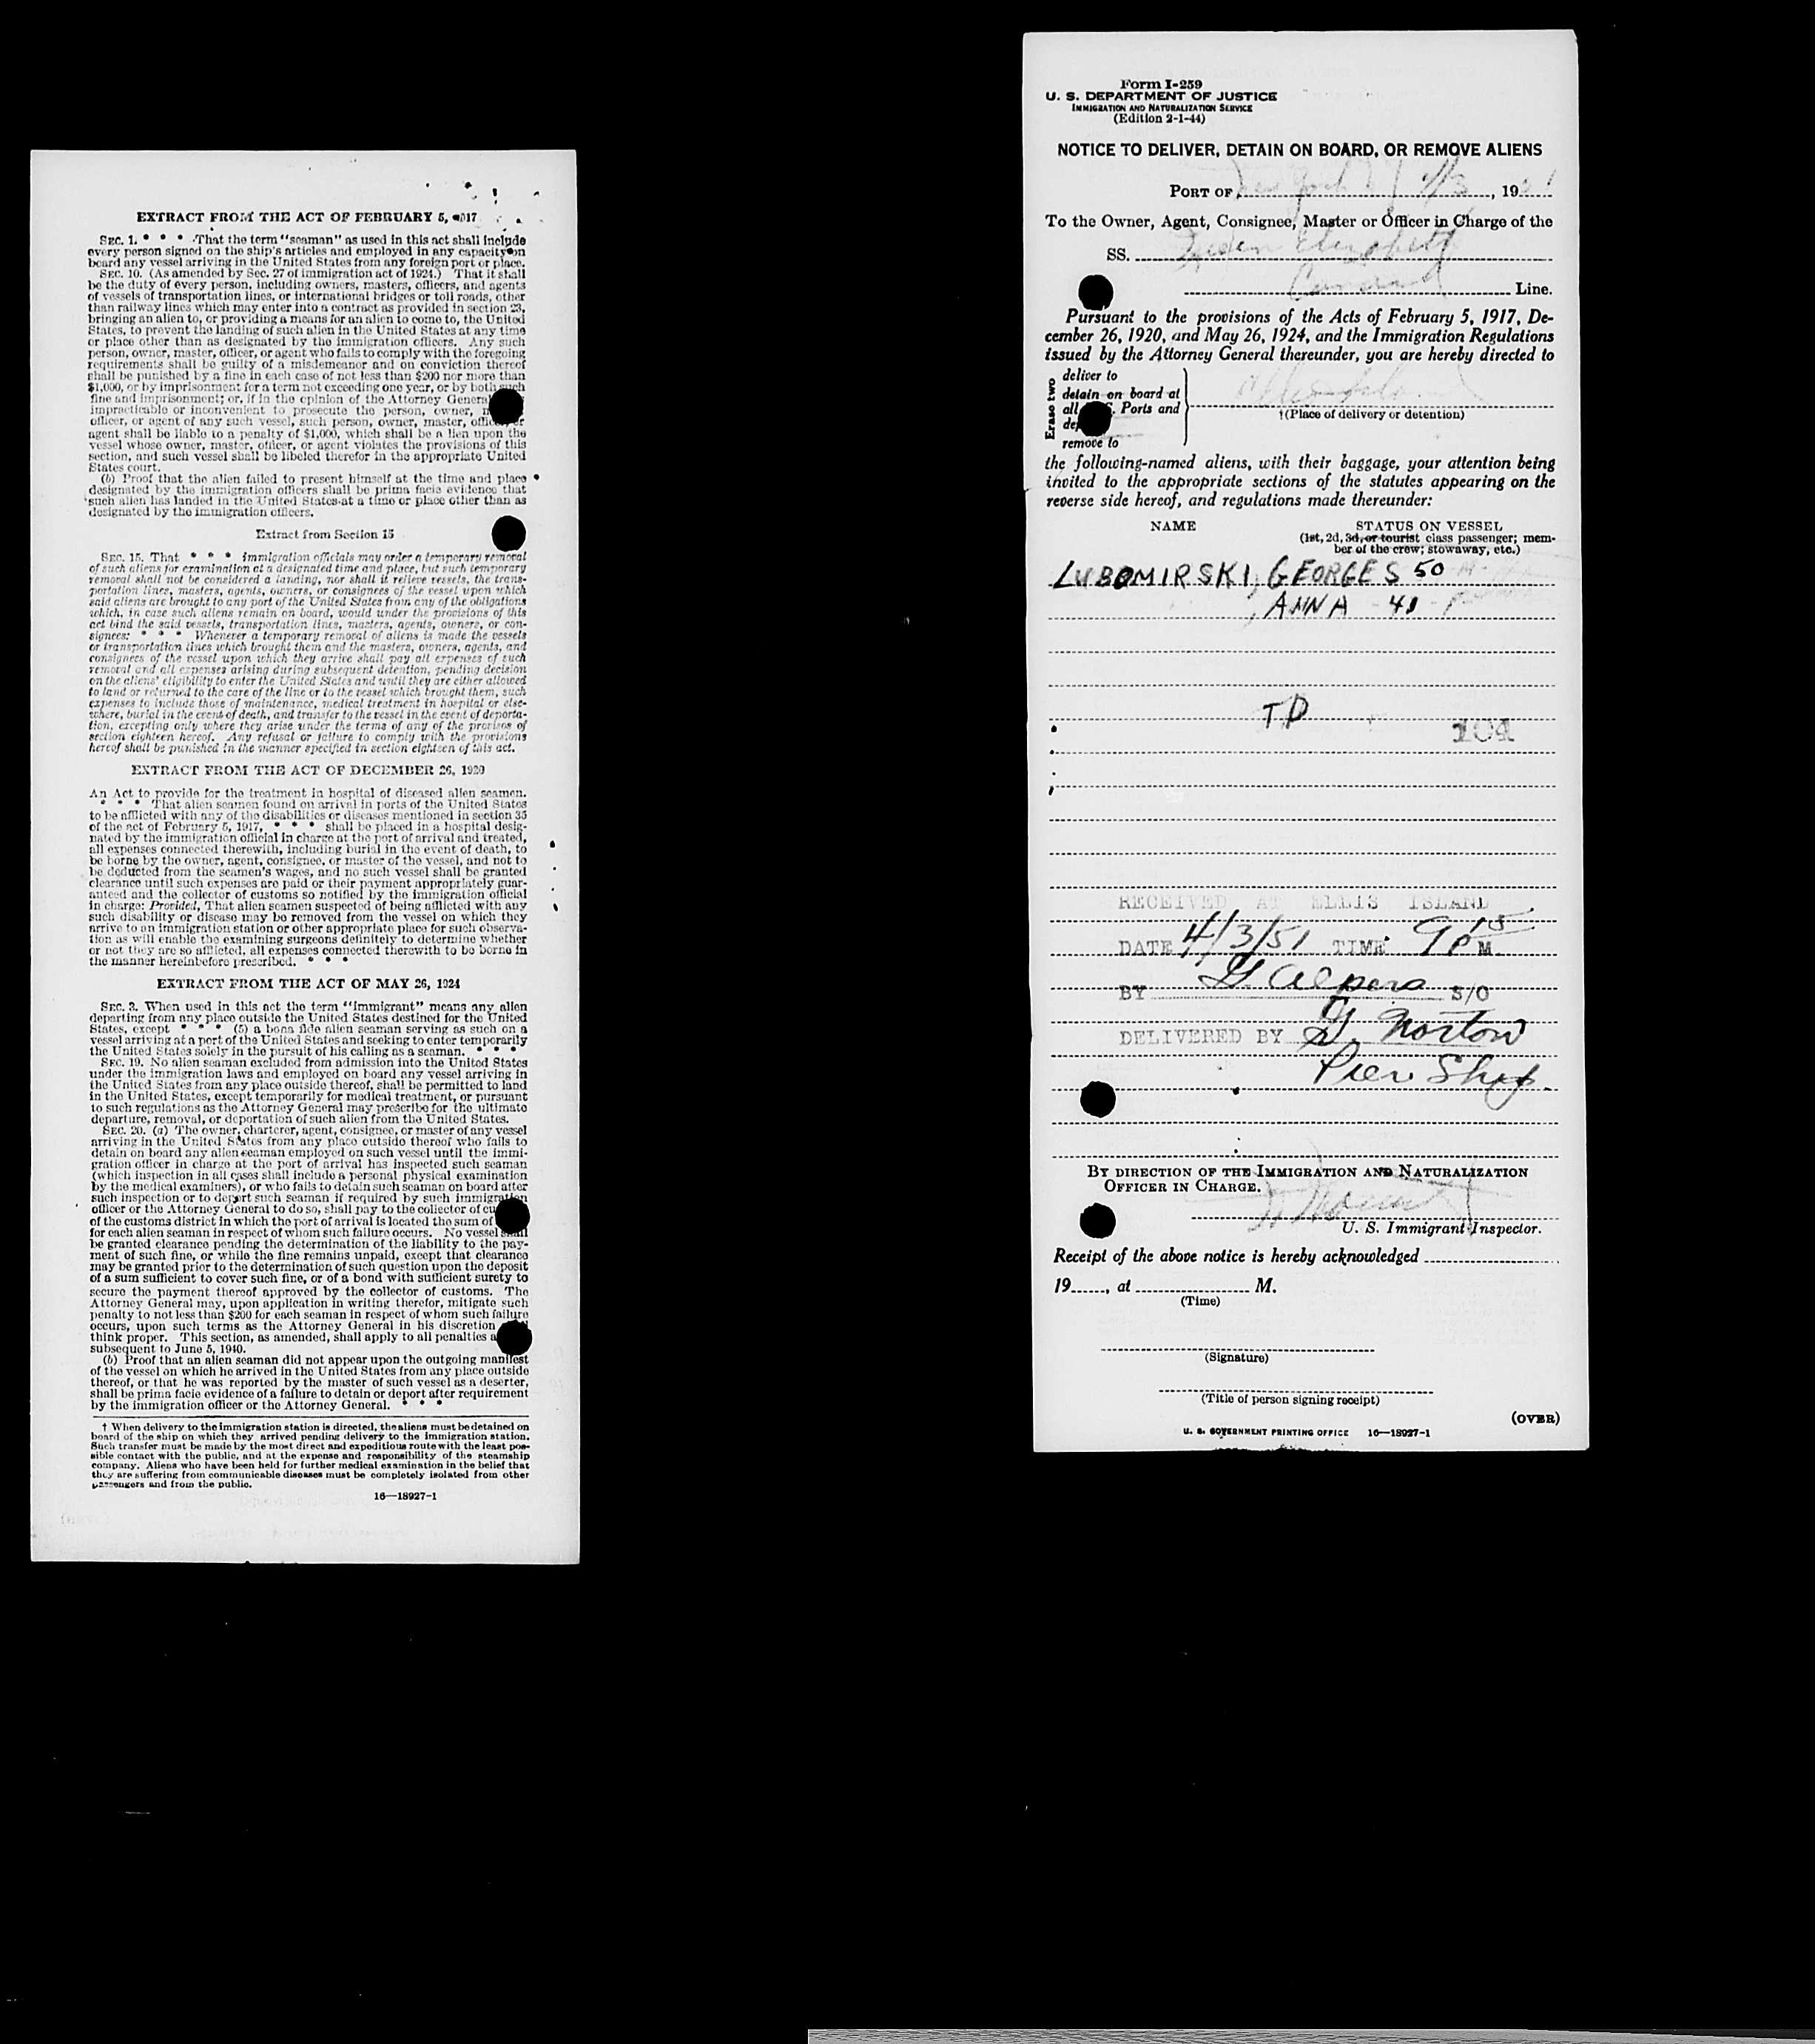 EXTRACT FROM THE ACT OF FEBRUARY 5, 1917
SEC. 1. * * * That the term "seaman" as used in this act shall include
every person signed on the ship's articles and employed in any capacity on
board any vessel arriving in the United States from any foreign port or place.
SEC. 10. (As amended by Sec. 27 of immigration act of 1924.) That it shall
be the duty of every person, including owners, masters, officers, and agents
of vessels of transportation lines, or international bridges or toll roads, other
than railway lines which may enter into a contract as provided in section 23,
bringing an alien to, or providing a means for an alien to come to, the United
States, to prevent the landing of such alien in the United States at any time
or place other than as designated by the immigration officers. Any such
person, owner, master, officer, or agent who fails to comply with the foregoing
requirements shall be guilty of a misdemeanor and on conviction thereof
shall be punished by a fine in each case of not less than $200 nor more than
$1,000, or by imprisonment for a term not exceeding one year, or by both such
fine and imprisonment; or, if in the opinion of the Attorney General
impracticable or inconvenient to prosecute the person, owner,
officer, or agent of any such vessel, such person, owner, master, officer, or
agent shall be liable to a penalty of $1,000, which shall be a lien upon the
vessel whose owner, master, officer, or agent violates the provisions of this
section, and such vessel shall be libeled therefor in the appropriate United
States court.
(b) Proof that the alien failed to present himself at the time and place
designated by the immigration officers shall be prima facie evidence that
such alien has landed in the United States at a time or place other than as
designated by the immigration officers.
Extract from Section 15
SEC. 15. That * * * immigration officials may order a temporary removal
of such aliens for examination at a designated time and place, but such temporary
removal shall not be considered a landing, nor shall it relieve vessels, the trans-
portation lines, masters, agents, owners, or consignees of the vessel upon which
said aliens are brought to any port of the United States from any of the obligations
which, in case such aliens remain on board, would under the provisions of this
act bind the said vessels, transportation lines, masters, agents, owners, or con-
signees: * * * Whenever a temporary removal of aliens is made the vessels
or transportation lines which brought them and the masters, owners, agents, and
consignees of the vessel upon which they arrive shall pay all expenses of such
removal and all expenses arising during subsequent detention, pending decision
on the aliens' eligibility to enter the United States and until they are either allowed
to land or returned to the care of the line or to the vessel which brought them, such
expenses to include those of maintenance, medical treatment in hospital or else-
where, burial in the event of death, and transfer to the vessel in the event of deporta-
tion, excepting only where they arise under the terms of any of the provisos of
section eighteen hereof. Any refusal or failure to comply with the provisions
hereof shall be punished in the manner specified in section eighteen of this act.
EXTRACT FROM THE ACT OF DECEMBER 26, 1920
An Act to provide for the treatment in hospital of diseased alien seamen.
* * * That alien seamen found on arrival in ports of the United States
to be afflicted with any of the disabilities or diseases mentioned in section 35
of the act of February 5, 1917, * * * shall be placed in a hospital desig-
nated by the immigration official in charge at the port of arrival and treated,
all expenses connected therewith, including burial in the event of death, to
be borne by the owner, agent, consignee, or master of the vessel, and not to
be deducted from the seamen's wages, and no such vessel shall be granted
clearance until such expenses are paid or their payment appropriately guar-
anteed and the collector of customs so notified by the immigration official
in charge: Provided, That alien seamen suspected of being afflicted with any
such disability or disease may be removed from the vessel on which they
arrive to an immigration station or other appropriate place for such observa-
tion as will enable the examining surgeons definitely to determine whether
or not they are so afflicted, all expenses connected therewith to be borne in
the manner hereinbefore prescribed. * * *
EXTRACT FROM THE ACT OF MAY 26, 1924
SEC. 3. When used in this act the term "immigrant" means any alien
departing from any place outside the United States destined for the United
States, except * * * (5) a bona fide alien seaman serving as such on a
vessel arriving at a port of the United States and seeking to enter temporarily
the United States solely in the pursuit of his calling as a seaman. * * *
SEC. 19. No alien seaman excluded from admission into the United States
under the immigration laws and employed on board any vessel arriving in
the United States from any place outside thereof, shall be permitted to land
in the United States, except temporarily for medical treatment, or pursuant
to such regulations as the Attorney General may prescribe for the ultimate
departure, removal, or deportation of such alien from the United States.
SEC. 20. (a) The owner, charterer, agent, consignee, or master of any vessel
arriving in the United States from any place outside thereof who fails to
detain on board any alien seaman employed on such vessel until the immi-
gration officer in charge at the port of arrival has inspected such seaman
(which inspection in all cases shall include a personal physical examination
by the medical examiners), or who fails to detain such seaman on board after
such inspection or to deport such seaman if required by such immigration
officer or the Attorney General to do so, shall pay to the collector of cu
of the customs district in which the port of arrival is located the sum of
for each alien seaman in respect of whom such failure occurs. No vessel shall
be granted clearance pending the determination of the liability to the pay-
ment of such fine, or while the fine remains unpaid, except that clearance
may be granted prior to the determination of such question upon the deposit
of a sum sufficient to cover such fine, or of a bond with sufficient surety to
secure the payment thereof approved by the collector of customs. The
Attorney General may, upon application in writing therefor, mitigate such
penalty to not less than $200 for each seaman in respect of whom such failure
occurs, upon such terms as the Attorney General in his discretion
think proper. This section, as amended, shall apply to all penalties a
subsequent to June 5, 1940.
(b) Proof that an alien seaman did not appear upon the outgoing manifest
of the vessel on which he arrived in the United States from any place outside
thereof, or that he was reported by the master of such vessel as a deserter,
shall be prima facie evidence of a failure to detain or deport after requirement
by the immigration officer or the Attorney General. * * *
† When delivery to the immigration station is directed, the aliens must be detained on
board of the ship on which they arrived pending delivery to the immigration station.
Such transfer must be made by the most direct and expeditious route with the least pos-
sible contact with the public, and at the expense and responsibility of the steamship
company. Aliens who have been held for further medical examination in the belief that
they are suffering from communicable diseases must be completely isolated from other
passengers and from the public.
16—18927-1
Form I-259
U. S. DEPARTMENT OF JUSTICE
IMMIGRATION AND NATURALIZATION SERVICE
(Edition 2-1-44)
NOTICE TO DELIVER, DETAIN ON BOARD, OR REMOVE ALIENS
PORT OF New York 4/3, 1951
To the Owner, Agent, Consignee, Master or Officer in Charge of the
SS. Queen Elizabeth
Cunard Line.
Pursuant to the provisions of the Acts of February 5, 1917, De-
cember 26, 1920, and May 26, 1924, and the Immigration Regulations
issued by the Attorney General thereunder, you are hereby directed to
Erase two
deliver to
detain on board at
all . Ports and
de
remove to
†(Place of delivery or detention)
the following-named aliens, with their baggage, your attention being
invited to the appropriate sections of the statutes appearing on the
reverse side hereof, and regulations made thereunder:
NAME STATUS ON VESSEL
(1st, 2d, 3d, or tourist class passenger; mem-
ber of the crew; stowaway, etc.)
LUBOMIRSKI, GEORGES 50
, ANNA - 41
TD 104
RECEIVED AT ELLIS ISLAND
DATE 4/3/51 TIME 9 15 PM
BY G. Alpers S/O
DELIVERED BY G. Norton
Pier Shef
BY DIRECTION OF THE IMMIGRATION AND NATURALIZATION
OFFICER IN CHARGE.
U. S. Immigrant Inspector.
Receipt of the above notice is hereby acknowledged
19......, at M.
(Time)
(Signature)
(Title of person signing receipt)
(OVER)
U. S. GOVERNMENT PRINTING OFFICE 16—18927-1